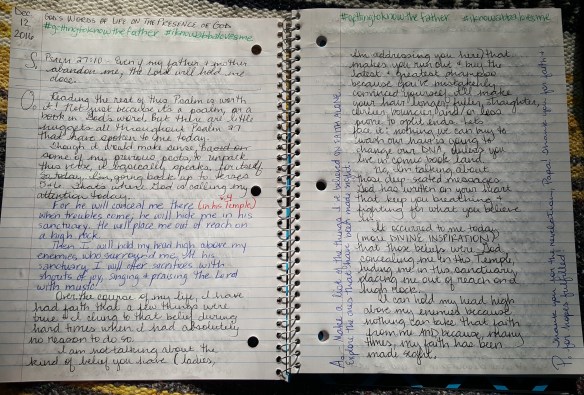 Dec. 12 2016
God's Words of Life on the Presence of God
#gettingtoknowthefather #iknowabbalovesme
S. Psalm 27:10 - Even if my father & mother
abandon me, the Lord will hold me
close.
O. Reading the rest of this Psalm is worth
it! Not just because its a psalm, or a
book in God's word, but there are little
nuggets all throughout Psalm 27
that have spoken to me today.
Though it would make sense, based on
some of my previous posts, to unpack
this verse, it eloquently speaks for itself
so today, I'm going back up to verses
5-6. Thats where God is calling my
attention today.
For he will conceal me there (in his temple)
when troubles come; he will hide me in his
sanctuary. He will place me out of reach on
a high rock.
Then I will hold my head high above my
enemies who surround me. At his
sanctuary I will offer sacrifices with
shouts of joy, singing & praising the Lord
with music.
Over the course of my life, I have
had faith that a few things were
true & I clung to that belief during
hard times when I had absolutely
no reason to do so.
I am not talking about the
kind of belief you have (ladies,
#gettingtoknowthefather #iknowabbalovesme
I'm addressing you here) that
makes you run out & buy the
latest & greatest shampoo
because you've mistakenly
convinced yourself it'll make
your hair longer, fuller, straighter,
curlier, bouncier, and/or less
prone to split ends. Let's
face it; nothing we can buy to
wash our hair is going to
change our DNA, unless you
live in comic book land.
No, I'm talking about
those deep-seated messages
God has written on your heart
that keep you breathing &
fighting for what you believe
in.
It occurred to me today
(more DIVINE INSPIRATION)
that those beliefs were God
concealing me in His Temple,
hiding me in His sanctuary,
placing me out of reach on a
high rock.
I can hold my head high
above my enemies because
nothing can take that faith
from me and because many
times, my faith has been
made sight.
A. Make a list of the things I've believed by faith alone.
Explore the ones that have been made sight.
P. Thank you for the revelation, Papa. Thank you for faith &
for hopes fulfilled.